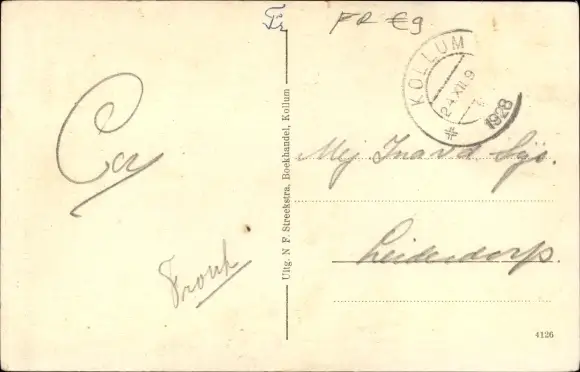 Fr
FR €9
KOLLUM
24.XII.9
1928
Ca
Mej Ina v d Sijs.
Leiderdorp.
Uitg. N F. Streekstra, Boekhandel, Kollum
4126